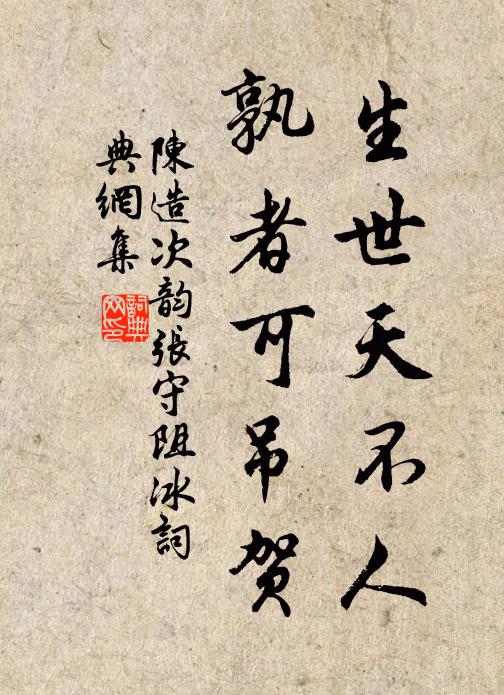 生世天不人
孰者可吊贺
陳造次韵張守阻冰詞
典網集
詞典
网印